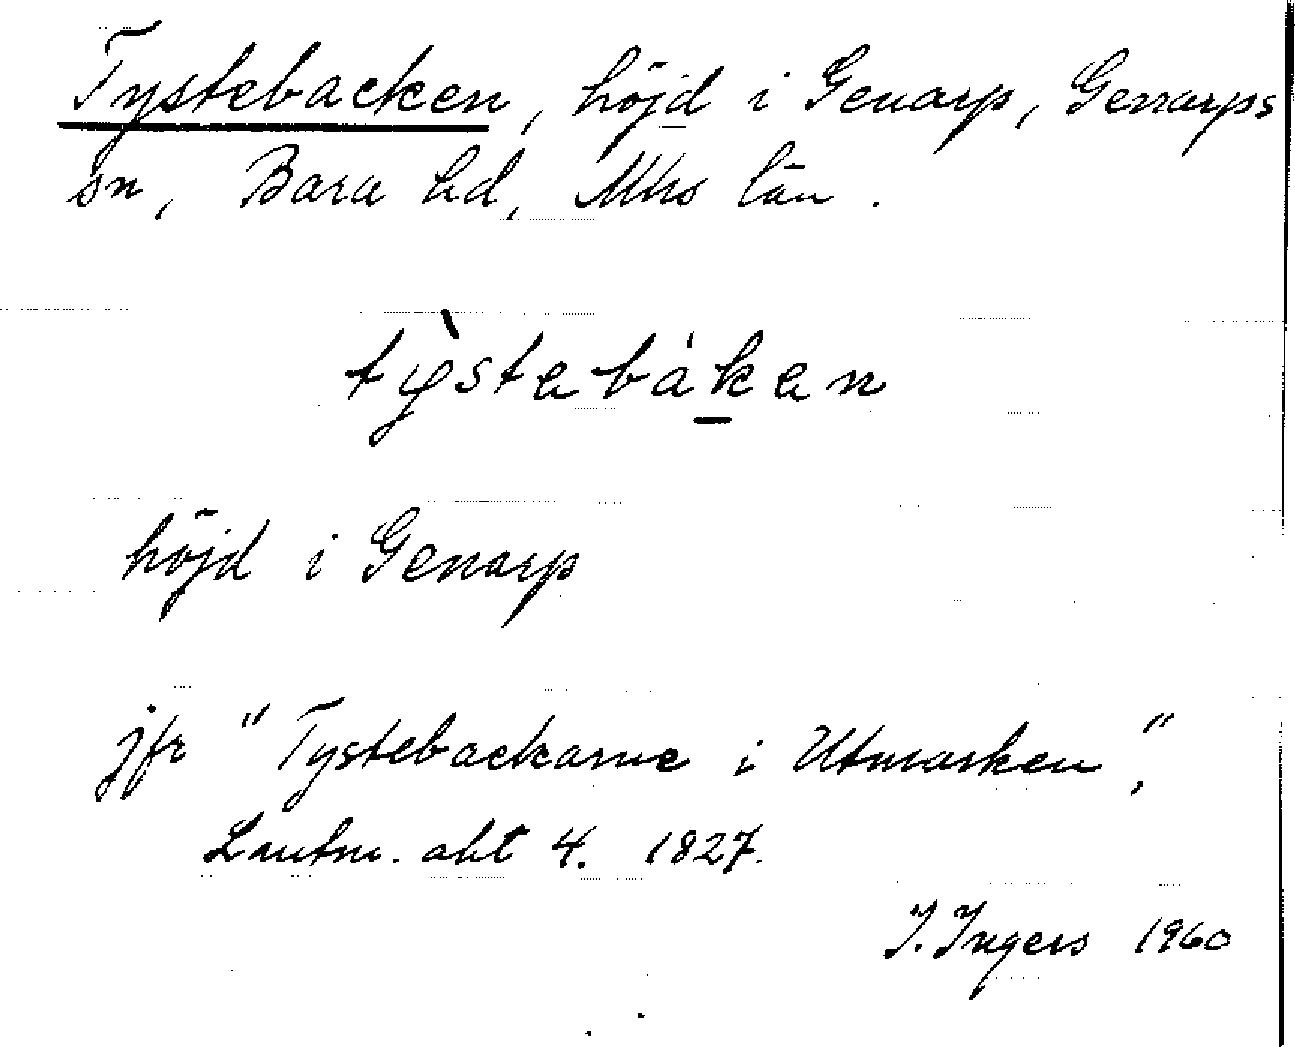 Tystebacken, höjd i Genarp, Genarps
sn, Bara hd, Mhs län.
tỳstebáken
höjd i Genarp
jfr "Tystebackarne i Utmarken",
Lantm. akt 4. 1827.
I. Ingers 1960